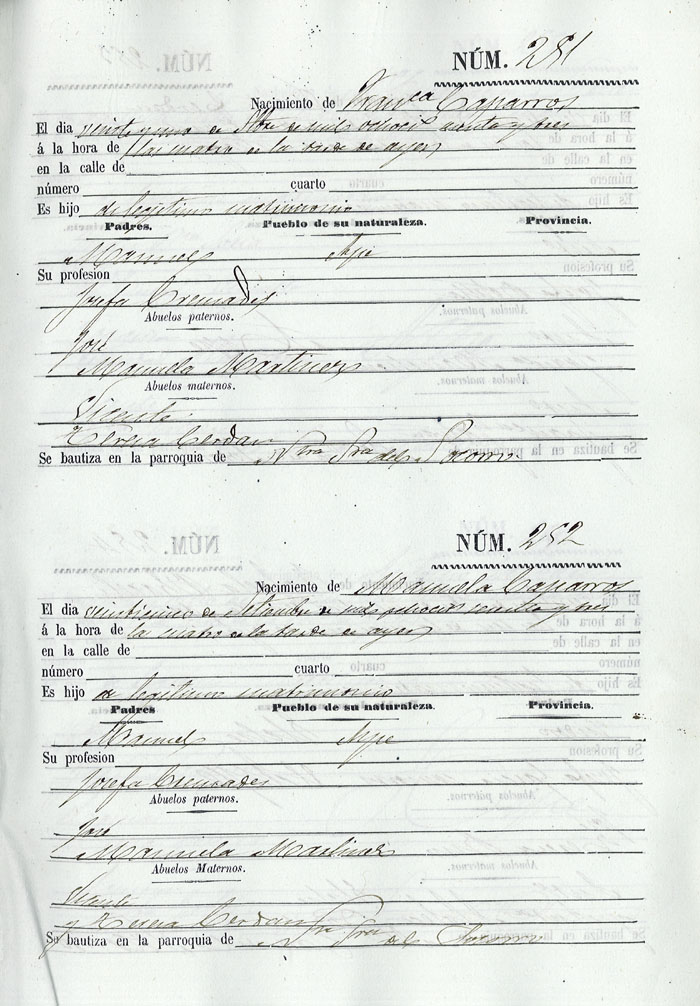 NÚM. 251
Nacimiento de Fran.ca Caparros
El dia veinte y uno de Stbre de mil ochoci.s sesenta y tres
á la hora de las cuatro de la tarde de ayer
en la calle de
número cuarto
Es hijo de legitimo matrimonio
Padres. Pueblo de su naturaleza. Provincia.
Manuel Aspe
Su profesion
Josefa Cremades
Abuelos paternos.
José
Manuela Martinez
Abuelos maternos.
Vicente
Teresa Cerdan
Se bautiza en la parroquia de Ntra Sra del Socorro
NÚM. 252
Nacimiento de Manuela Caparros
El dia veinticinco de Setiembre de mil ochocis sesenta y tres
á la hora de las cuatro de la tarde de ayer
en la calle de
número cuarto
Es hijo de legitimo matrimonio
Padres Pueblo de su naturaleza. Provincia.
Manuel Aspe
Su profesion
Josefa Cremades
Abuelos paternos.
José
Manuela Martinez
Abuelos Maternos.
Vicente
y Teresa Cerdan
Se bautiza en la parroquia de Sra del Socorro